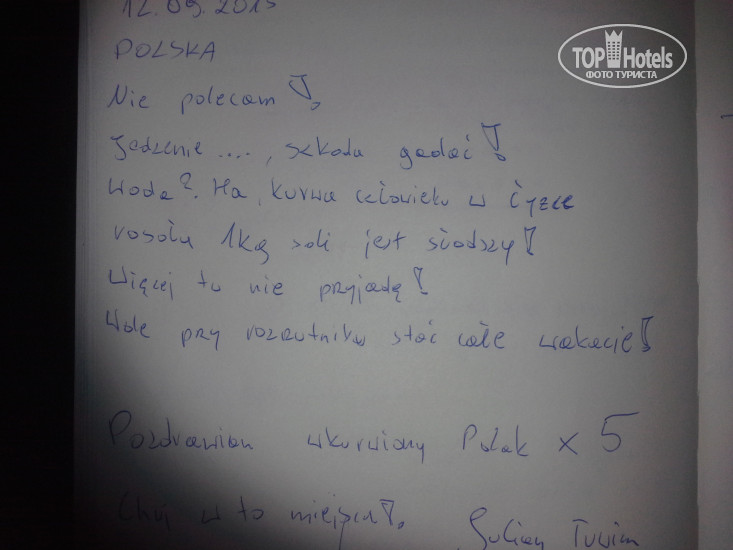 12.09.2013
POLSKA
TOP Hotels
ФОТО ТУРИСТА
Nie polecam!
Jedzenie ...., szkoda gadać!
Woda?. Ha, kurwa człowieku w łyżce
rosołu 1kg soli jest słodszy!
Więcej tu nie przyjadę!
Wole przy rozrzutniku stać całe wakacje!
Pozdrawiam wkurwiony Polak x 5
Chuj w to miejsce!. Julian Tuwim